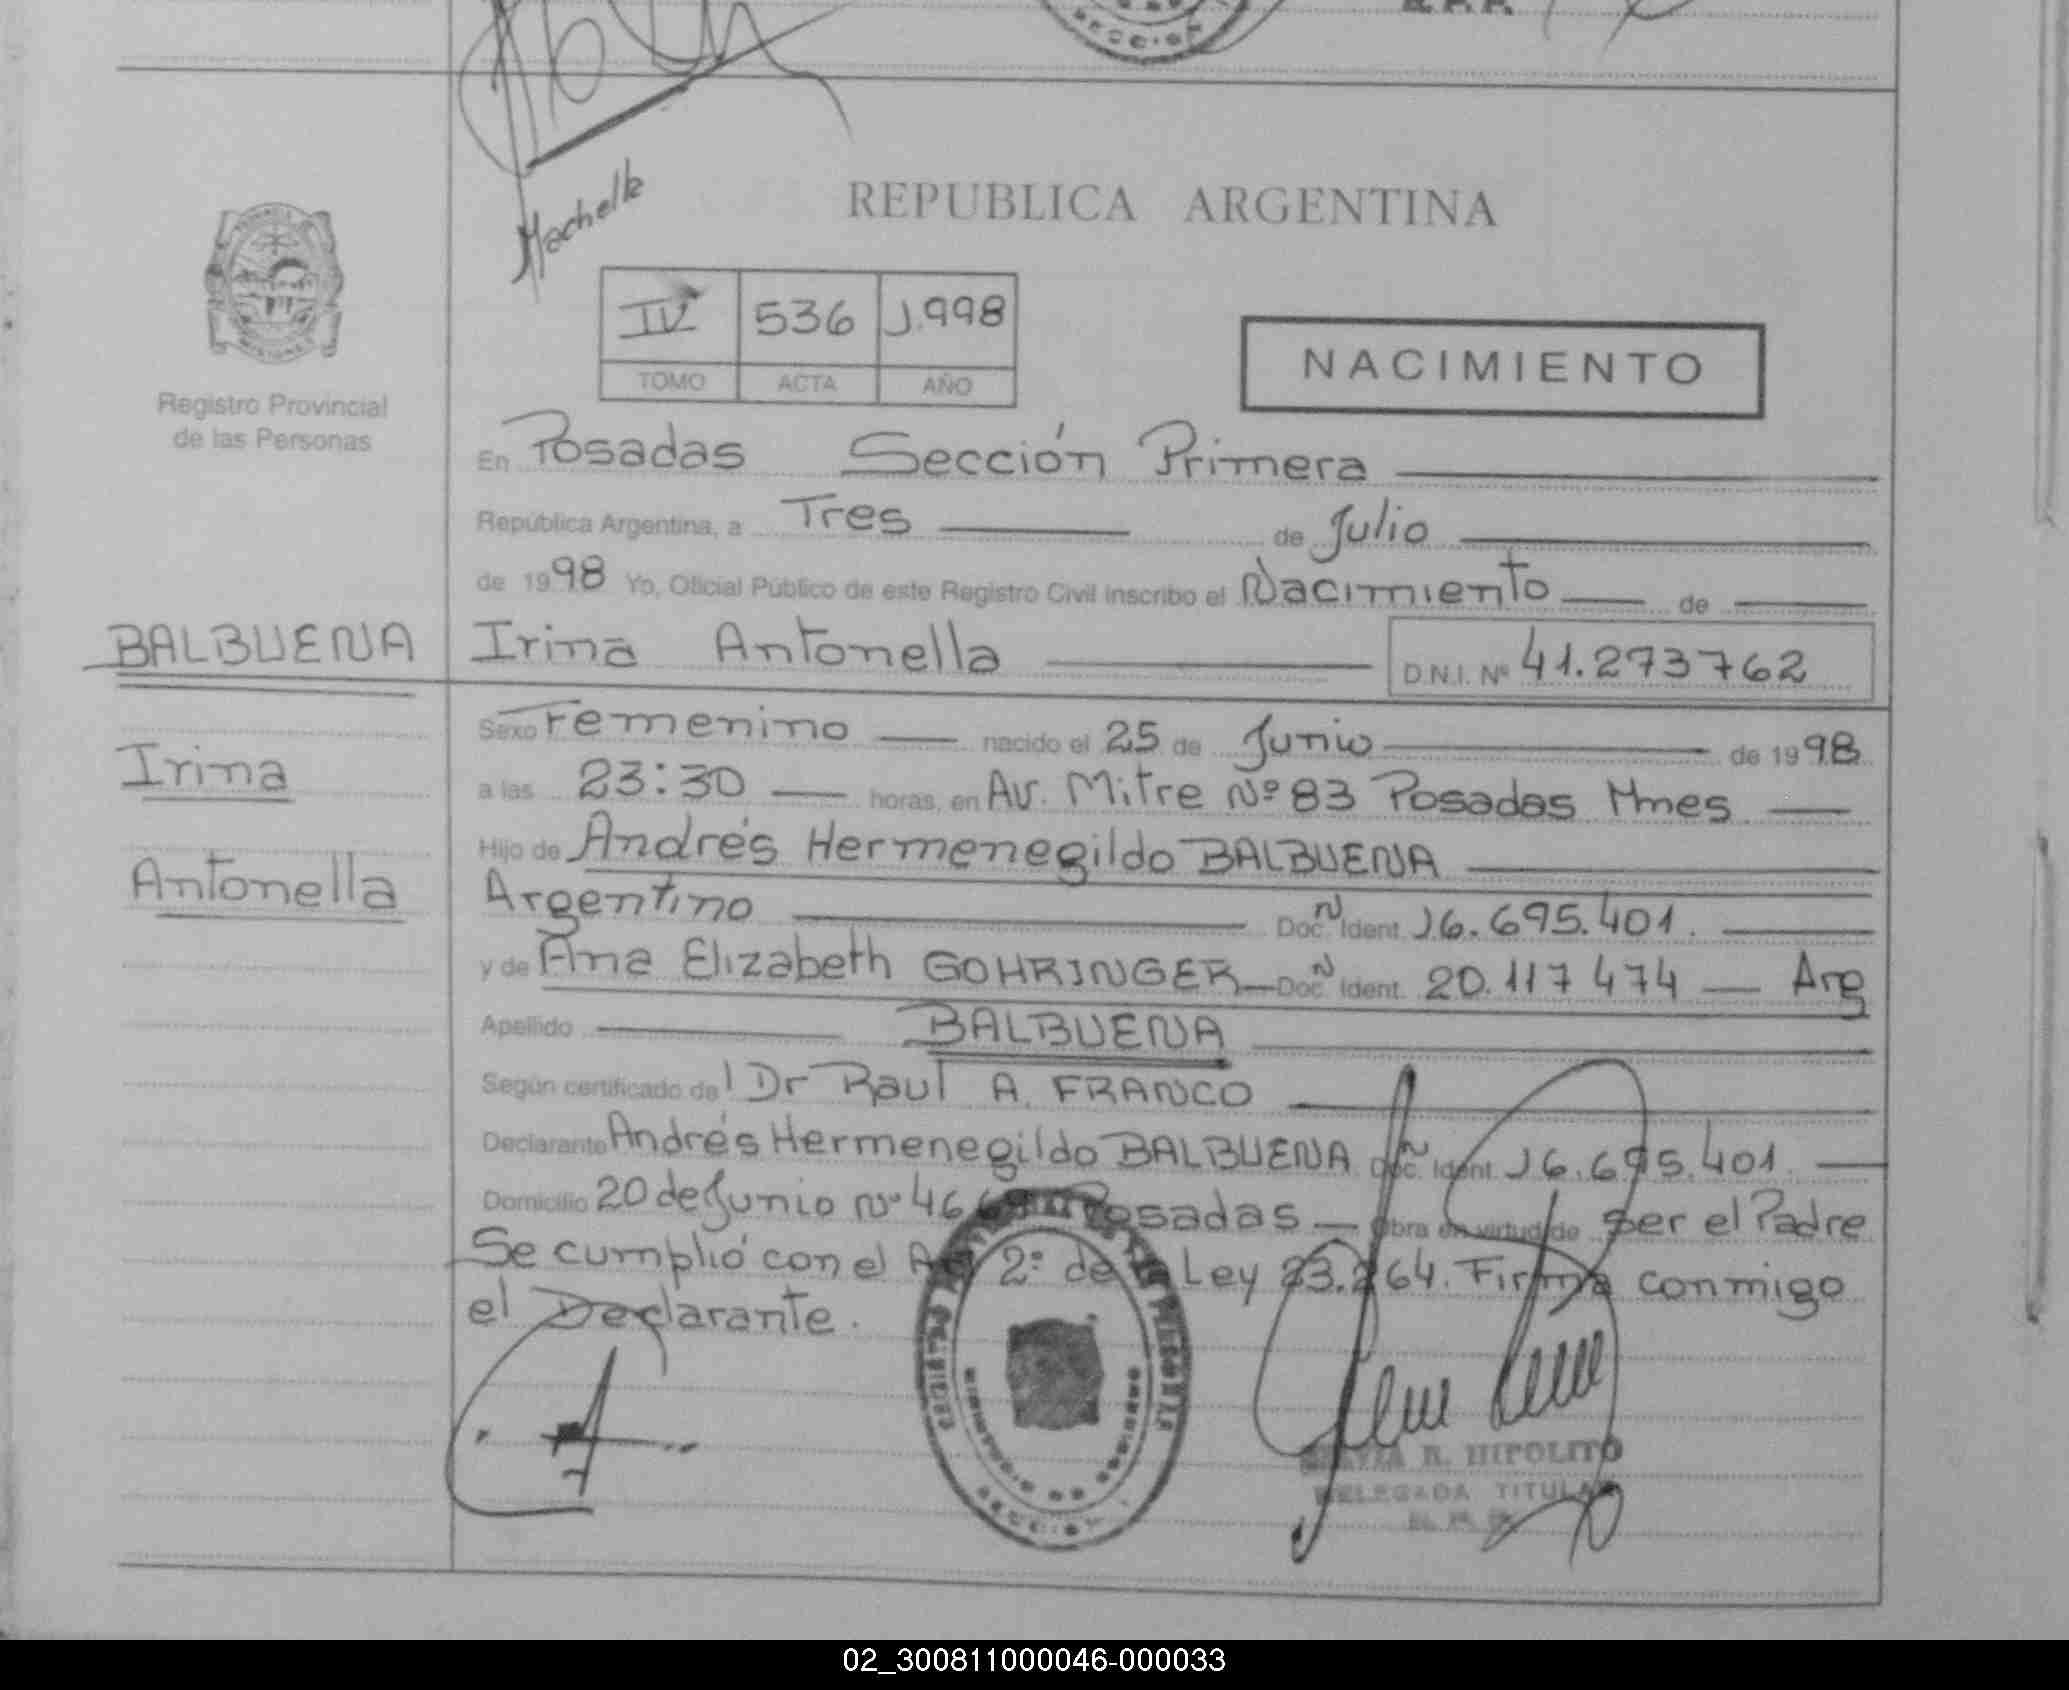 Machelk
REPUBLICA ARGENTINA
IV 536 1.998
TOMO ACTA AÑO
NACIMIENTO
Registro Provincial
de las Personas
En Posadas Sección Primera
República Argentina, a Tres de Julio
de 1998 Yo, Oficial Público de este Registro Civil inscribo el Nacimiento de
BALBUENA Irina Antonella D.N.I. Nº 41.273762
Irina
Antonella
Sexo Femenino nacido el 25 de Junio de 1998
a las 23:30 horas, en Av. Mitre Nº 83 Posadas Mnes
Hijo de Andrés Hermenegildo BALBUENA
Argentino Doc. N Ident. 16.695.401.
y de Ana Elizabeth GOHRINGER Doc. N Ident. 20.117474 Arg
Apellido BALBUENA
Según certificado del Dr Raul A. FRANCO
Declarante Andrés Hermenegildo BALBUENA Doc. N Ident. 16.695.401.
Domicilio 20 de Junio Nº Posadas Obra en virtud de ser el Padre
Se cumplió con el Art 2º de la Ley 23.264. Firma conmigo
el Declarante.
R. HIPOLITO
DELEGADA TITULAR
02_300811000046-000033